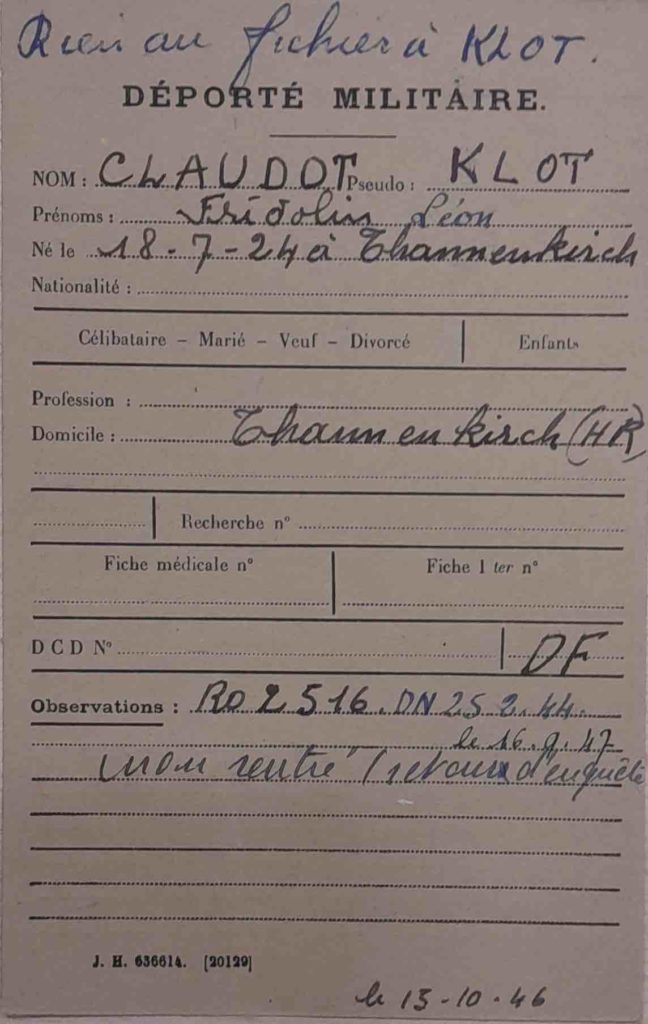 Rien au fichier à KLOT.
DÉPORTÉ MILITAIRE.
NOM : CLAUDOT Pseudo : KLOT
Prénoms : Fridolin Léon
Né le 18-7-24 à Thannenkirch
Nationalité :
Célibataire – Marié – Veuf – Divorcé Enfants
Profession :
Domicile : Thannenkirch (HR)
Recherche n°
Fiche médicale n° Fiche 1 ter n°
D C D N° DF
Observations : RO 2516. DN 25 2.44.
le 16.9.47
non rentré (retour d'enquête
J. H. 636614. [20129]
le 15-10-46